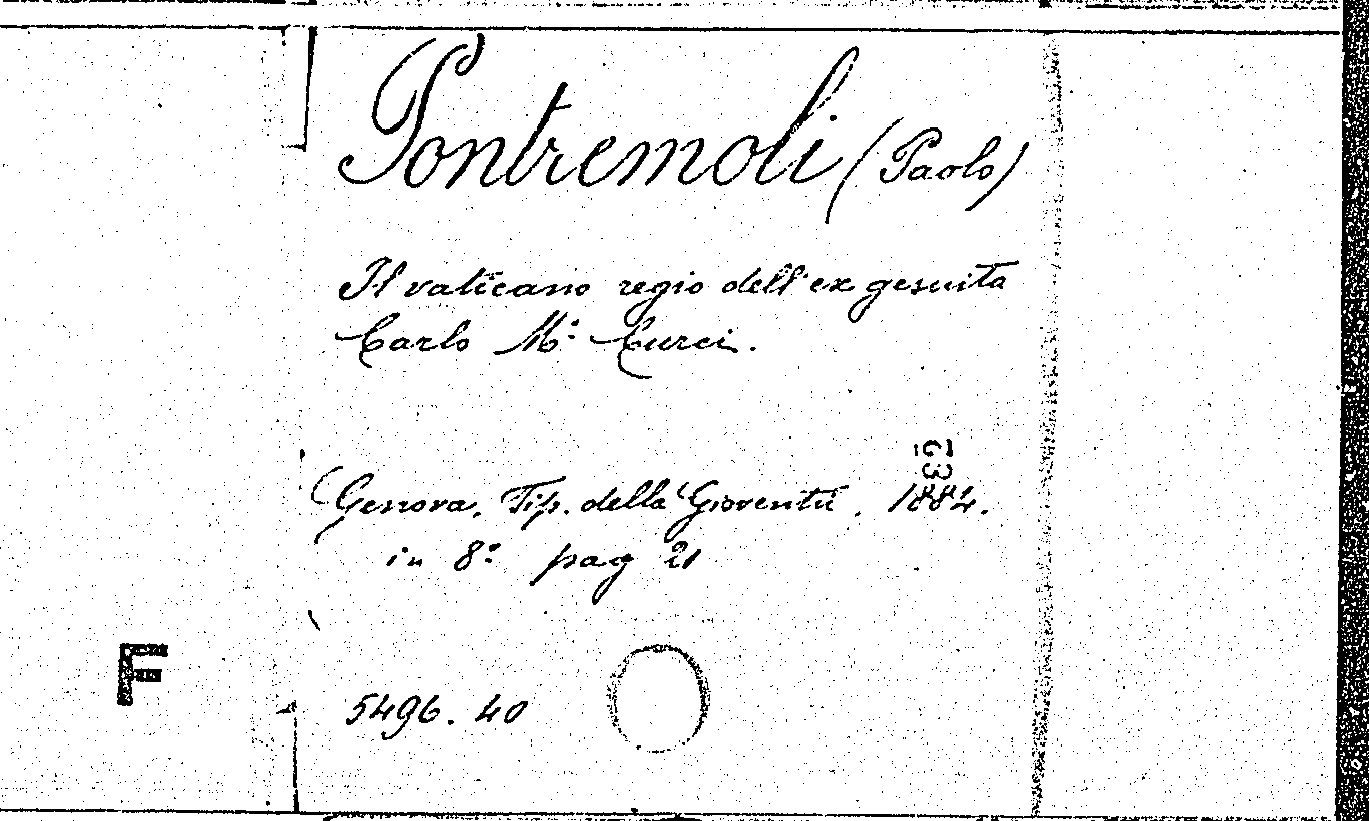 Pontremoli (Paolo)
Il vaticano regio dell'ex gesuita
Carlo M.ª Curci.
23
Genova. Tip. della Gioventù. 1884.
in 8º pag 21
F
5496. 40